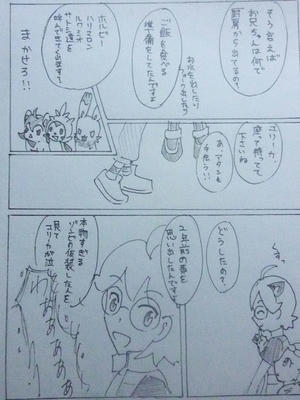 そう言えば
お兄ちゃんは何で
厨房から出てるの?
ご飯を食べる
準備をしてたんですよ
お水を入れたり
フォーク出したり
ホルビー
ハリマロン
ルクシオ
サトシ達を
呼んできて下さい
まかせろ!!
ユリーカ、
座って待ってて
下さいね
あ、
手洗い!!
どうしたの?
2年前の事を
思い出したんですよ
本物すぎる
ゾンビの仮装した人を
見て
ユリーカが泣
わああああ